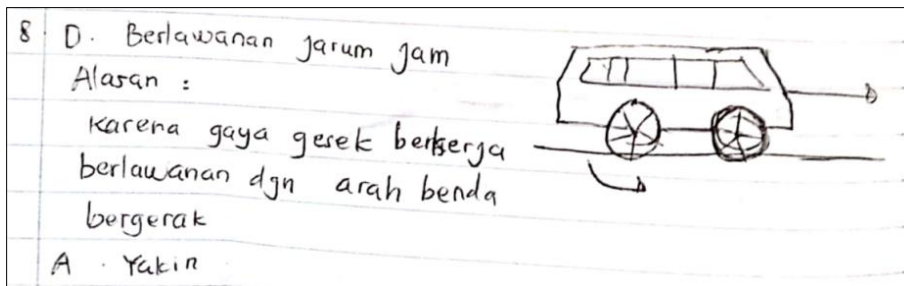 8. D. Berlawanan Jarum Jam
Alasan :
Karena gaya gesek berkerja
berlawanan dgn arah benda
bergerak
A. Yakin